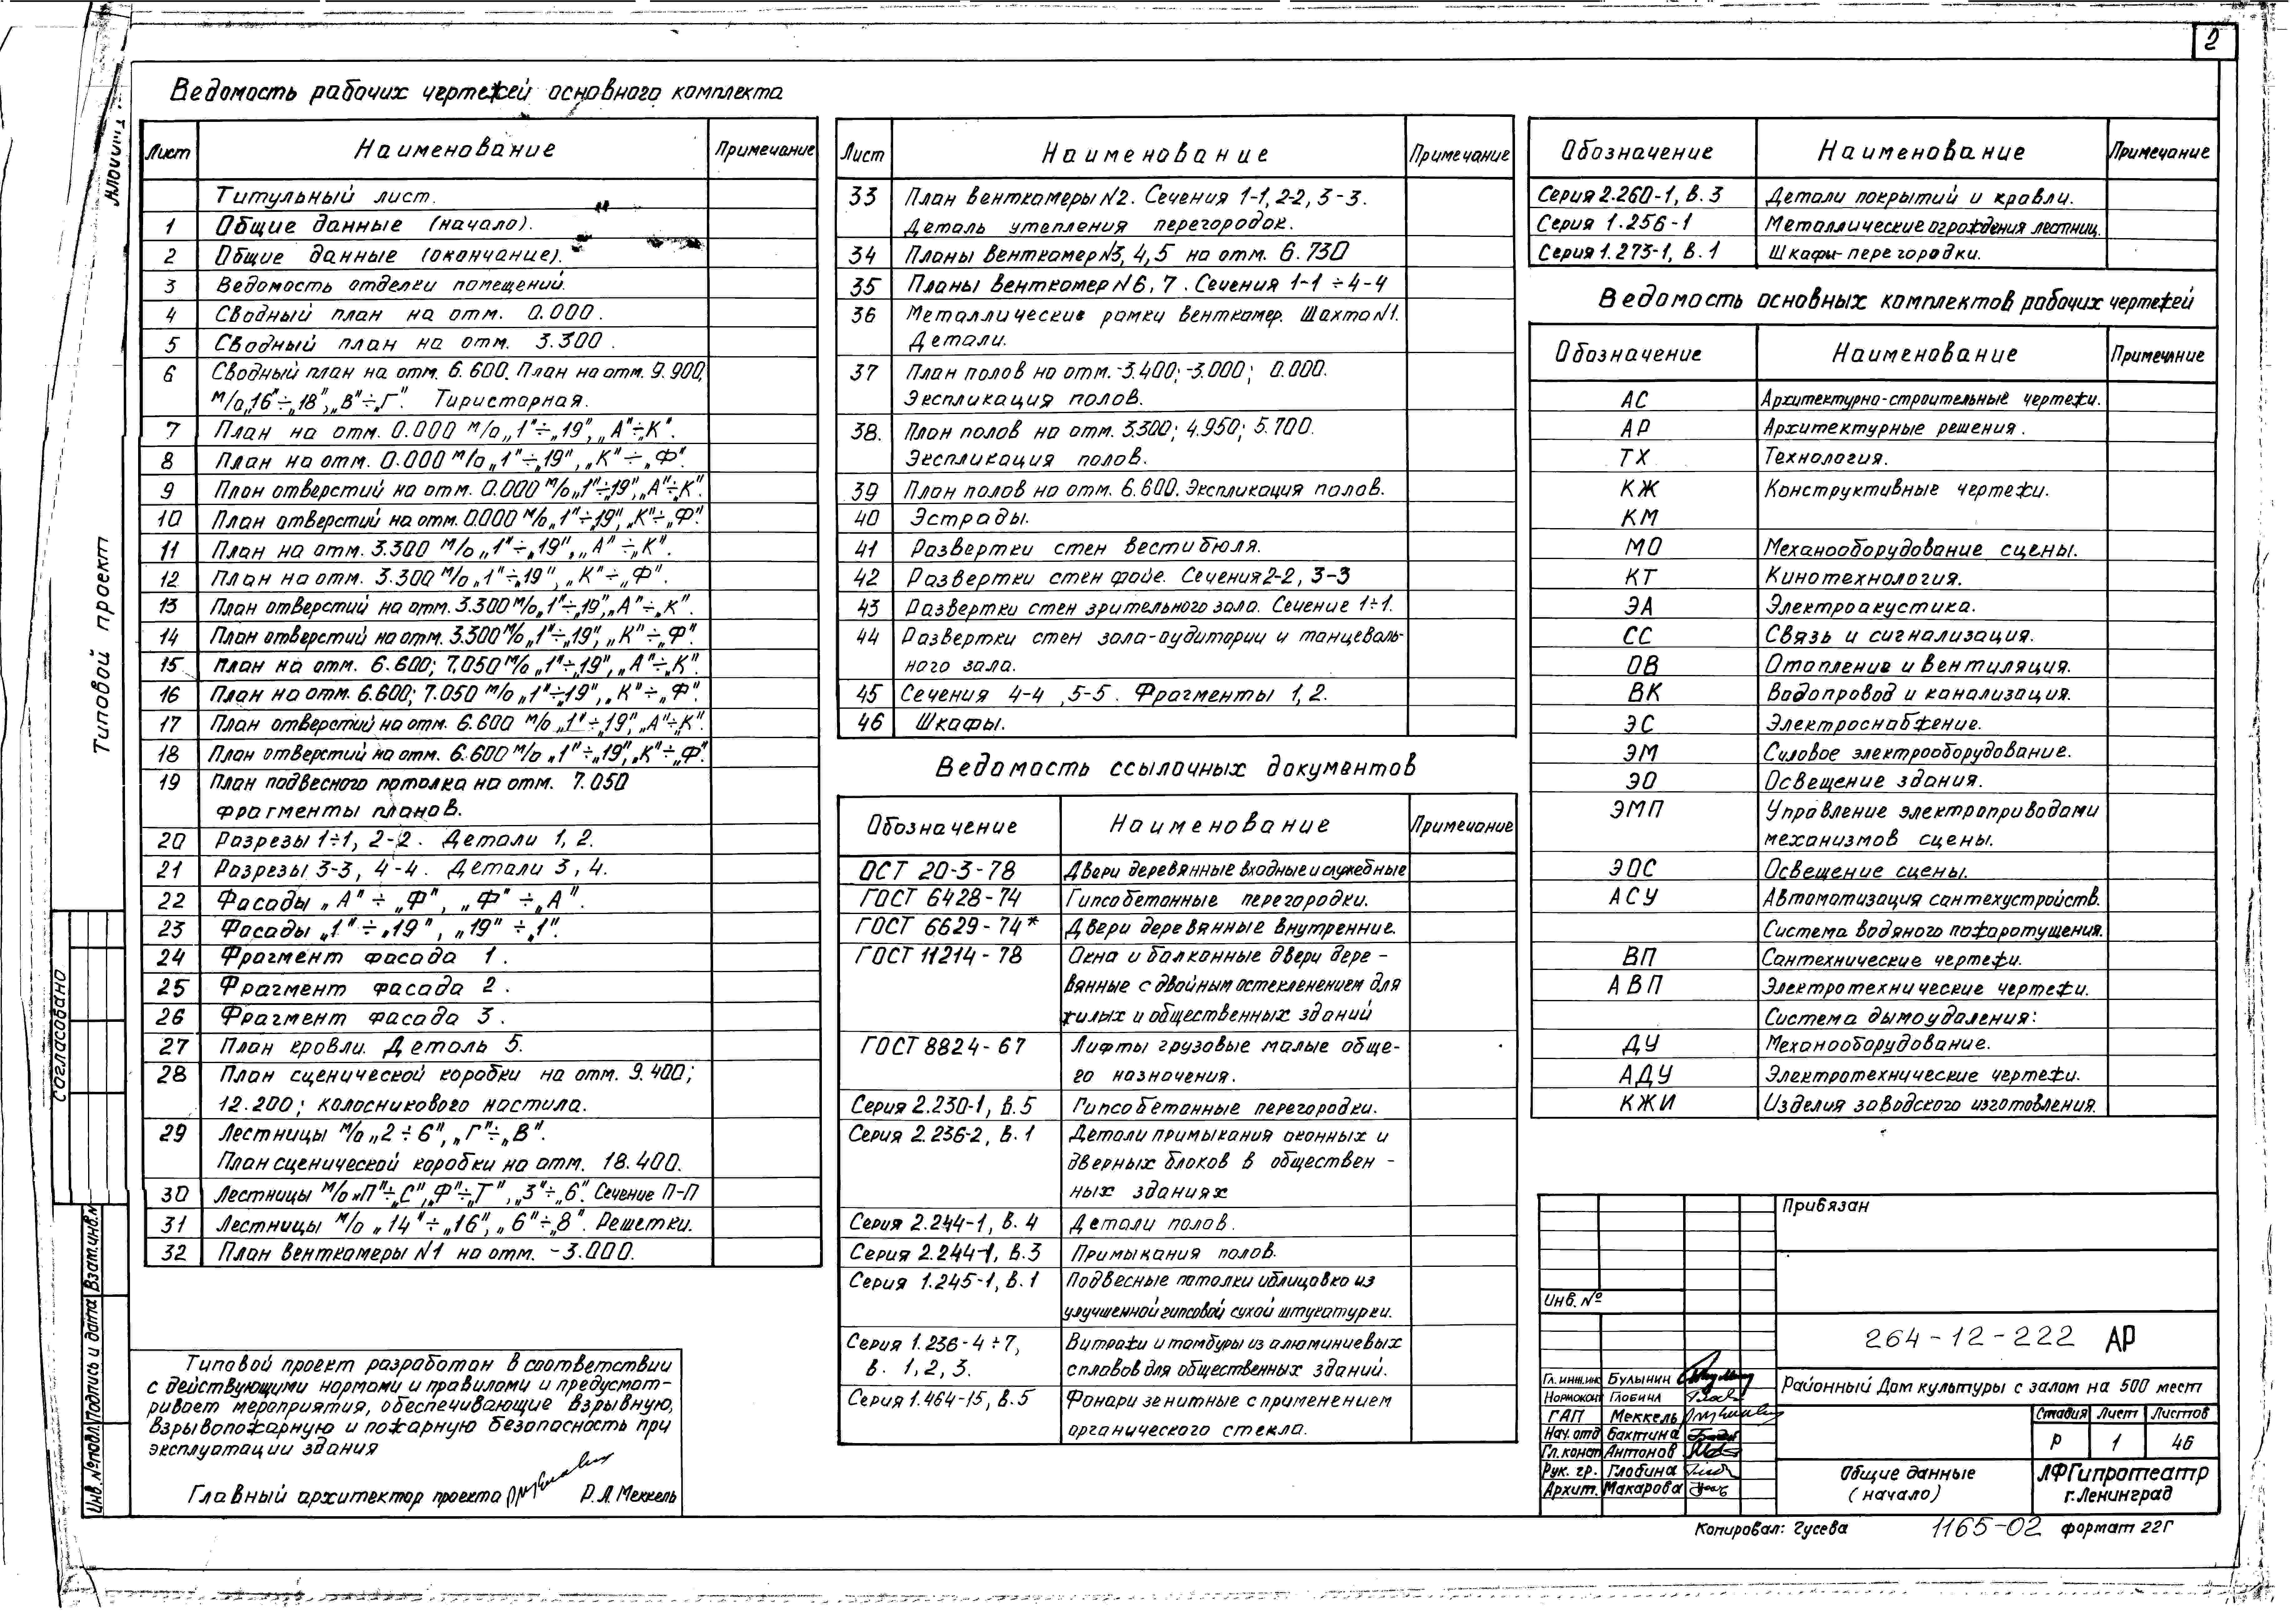 2
Ведомость рабочих чертежей основного комплекта
Лист Наименование Примечание
Титульный лист.
1 Общие данные (начало).
2 Общие данные (окончание).
3 Ведомость отделки помещений.
4 Сводный план на отм. 0.000.
5 Сводный план на отм. 3.300.
6 Сводный план на отм. 6.600. План на отм. 9.900,
м/о „16"÷„18", „В"÷„Г". Тиристорная.
7 План на отм. 0.000 м/о „1"÷„19", „А"÷„К".
8 План на отм. 0.000 м/о „1"÷„19", „К"÷„Ф".
9 План отверстий на отм. 0.000 м/о „1"÷„19", „А"÷„К".
10 План отверстий на отм. 0.000 м/о „1"÷„19", „К"÷„Ф".
11 План на отм. 3.300 м/о „1"÷„19", „А"÷„К".
12 План на отм. 3.300 м/о „1"÷„19", „К"÷„Ф".
13 План отверстий на отм. 3.300 м/о „1"÷„19", „А"÷„К".
14 План отверстий на отм. 3.300 м/о „1"÷„19", „К"÷„Ф".
15 План на отм. 6.600; 7.050 м/о „1"÷„19", „А"÷„К".
16 План на отм. 6.600; 7.050 м/о „1"÷„19", „К"÷„Ф".
17 План отверстий на отм. 6.600 м/о „1"÷„19", „А"÷„К".
18 План отверстий на отм. 6.600 м/о „1"÷„19", „К"÷„Ф".
19 План подвесного потолка на отм. 7.050
фрагменты планов.
20 Разрезы 1÷1, 2-2. Детали 1, 2.
21 Разрезы 3-3, 4-4. Детали 3, 4.
22 Фасады „А"÷„Ф", „Ф"÷„А".
23 Фасады „1"÷„19", „19"÷„1".
24 Фрагмент фасада 1.
25 Фрагмент фасада 2.
26 Фрагмент фасада 3.
27 План кровли. Деталь 5.
28 План сценической коробки на отм. 9.400;
12.200; колосникового настила.
29 Лестницы м/о „2÷6", „Г"÷„В".
План сценической коробки на отм. 18.400.
30 Лестницы м/о „П"÷„С", „Ф"÷„Т", „3"÷„6". Сечение П-П
31 Лестницы м/о „14"÷„16", „6"÷„8". Решетки.
32 План венткамеры N1 на отм. -3.000.
Типовой проект разработан в соответствии
с действующими нормами и правилами и предусмат-
ривает мероприятия, обеспечивающие взрывную,
взрывопожарную и пожарную безопасность при
эксплуатации здания
Главный архитектор проекта Р.А. Меккель
Лист Наименование Примечание
33 План венткамеры N2. Сечения 1-1, 2-2, 3-3.
Деталь утепления перегородок.
34 Планы венткамер N3, 4, 5 на отм. 6.730
35 Планы венткамер N6, 7. Сечения 1-1÷4-4
36 Металлические рамки венткамер. Шахта N1.
Детали.
37 План полов на отм. -3.400; -3.000; 0.000.
Экспликация полов.
38. План полов на отм. 3.300; 4.950; 5.700.
Экспликация полов.
39 План полов на отм. 6.600. Экспликация полов.
40 Эстрады.
41 Развертки стен вестибюля.
42 Развертки стен фойе. Сечения 2-2, 3-3
43 Развертки стен зрительного зала. Сечение 1÷1.
44 Развертки стен зала-аудитории и танцеваль-
ного зала.
45 Сечения 4-4, 5-5. Фрагменты 1, 2.
46 Шкафы.
Ведомость ссылочных документов
Обозначение Наименование Примечание
ОСТ 20-3-78 Двери деревянные входные и служебные
ГОСТ 6428-74 Гипсобетонные перегородки.
ГОСТ 6629-74* Двери деревянные внутренние.
ГОСТ 11214-78 Окна и балконные двери дере-
вянные с двойным остекленением для
жилых и общественных зданий
ГОСТ 8824-67 Лифты грузовые малые обще-
го назначения.
Серия 2.230-1, в.5 Гипсобетонные перегородки.
Серия 2.236-2, в.1 Детали примыкания оконных и
дверных блоков в обществен-
ных зданиях
Серия 2.244-1, в.4 Детали полов.
Серия 2.244-1, в.3 Примыкания полов.
Серия 1.245-1, в.1 Подвесные потолки и облицовка из
улучшенной гипсовой сухой штукатурки.
Серия 1.236-4÷7, Витражи и тамбуры из алюминиевых
в. 1, 2, 3. сплавов для общественных зданий.
Серия 1.464-15, в.5 Фонари зенитные с применением
органического стекла.
Обозначение Наименование Примечание
Серия 2.260-1, в.3 Детали покрытий и кровли.
Серия 1.256-1 Металлические ограждения лестниц.
Серия 1.273-1, в.1 Шкафы-перегородки.
Ведомость основных комплектов рабочих чертежей
Обозначение Наименование Примечание
АС Архитектурно-строительные чертежи.
АР Архитектурные решения.
ТХ Технология.
КЖ Конструктивные чертежи.
КМ
МО Механооборудование сцены.
КТ Кинотехнология.
ЭА Электроакустика.
СС Связь и сигнализация.
ОВ Отопление и вентиляция.
ВК Водопровод и канализация.
ЭС Электроснабжение.
ЭМ Силовое электрооборудование.
ЭО Освещение здания.
ЭМП Управление электроприводами
механизмов сцены.
ЭОС Освещение сцены.
АСУ Автоматизация сантехустройств.
Система водяного пожаротушения.
ВП Сантехнические чертежи.
АВП Электротехнические чертежи.
Система дымоудаления:
ДУ Механооборудование.
АДУ Электротехнические чертежи.
КЖИ Изделия заводского изготовления.
Привязан
Инв. №
264-12-222 АР
Гл. инж. инс Булынин
Нормокон Глобина
ГАП Меккель
Нач. отд Бахтина
Гл. конст Антонов
Рук. гр. Глобина
Архит. Макарова
Районный Дом культуры с залом на 500 мест
Стадия Лист Листов
Р 1 46
Общие данные
(начало)
ЛФГипротеатр
г. Ленинград
Копировал: Гусева 1165-02 формат 22Г
Типовой проект
Согласовано
Инв. № подл. Подпись и дата Взам. инв. №